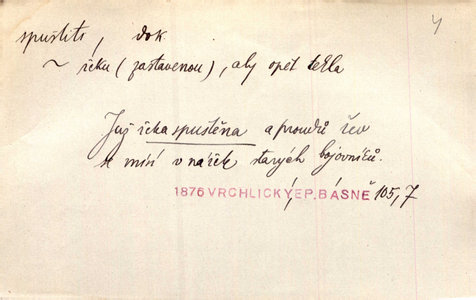 spustiti, dok
~ řeku (zastavenou), aby opět tekla
Již řeka spustěna a proudů řev
se mísí v nářek starých bojovníků.
1876 VRCHLICKÝ, EP. BÁSNĚ 105,7